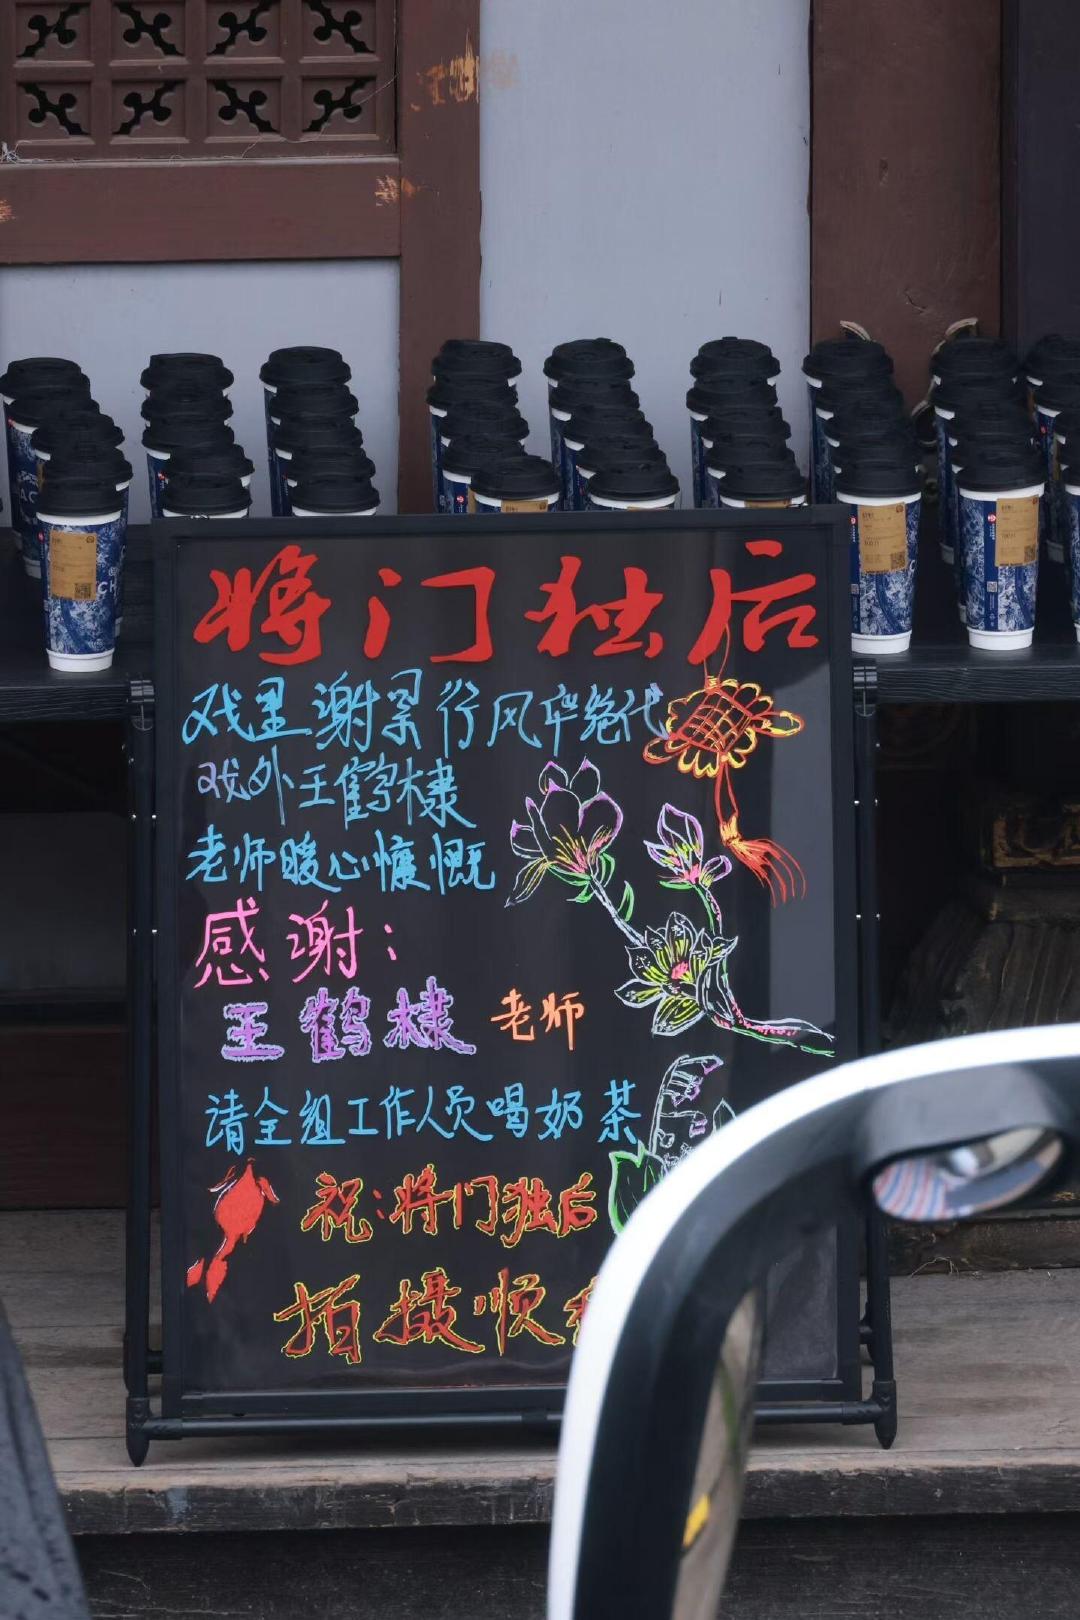 将门独后
戏里谢景行风华绝代
戏外王鹤棣
老师暖心慷慨
感谢：
王鹤棣 老师
请全组工作人员喝奶茶
祝：将门独后
拍摄顺